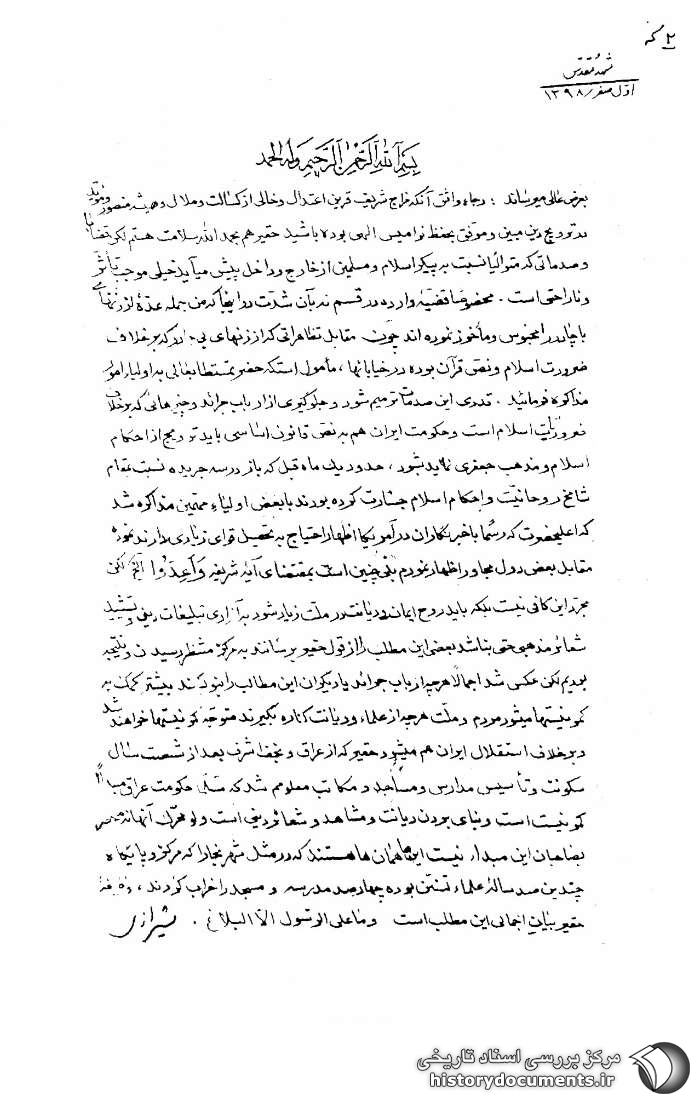 ۲ مکه
مشهد مقدس
اول صفر / ۱۳۹۸
بسم الله الرحمن الرحیم وله الحمد
بعرض عالی میرساند : رجاء واثق آنکه مزاج شریف قرین اعتدال و خالی از کسالت و ملال و همیشه منصور و مؤید
در ترویج دین مبین و موفق بحفظ نوامیس الهی بوده باشید حقیر هم بحمد الله سلامت هستم لکن قضایا
و صدماتی که متوالیا نسبت به پیکر اسلام و مسلمین از خارج و داخل پیش میآید خیلی موجب تأثر
و ناراحتی است . مخصوصا قضیهٔ وارده در قم نه بآن شدت در اینجا که من جمله عدهٔ از زنهای
با چادر را محبوس و مأخوذ نموده اند چون مقابل تظاهراتی که از زنهای بی که برخلاف
ضرورت اسلام و نص قرآن بوده در خیابانها ، مأمول استکه حضرتمستطابعالی به اولیاء امور
مذاکره فرمائید . قدری این صدمات ترمیم شود و جلوگیری از ارباب جرائد و چیزهائی که برخلاف
ضروریات اسلام است و حکومت ایران هم به نص قانون اساسی باید ترویج از احکام
اسلام و مذهب جعفری نماید بشود ، حدود یک ماه قبل که باز در سه جریده نسبت بمقام
شامخ روحانیت و احکام اسلام جسارت کرده بودند با بعض اولیاء مذاکره شد
که اعلیحضرت که رسما با خبرنگاران در آمریکا اظهار احتیاج به تحصیل قوای زیادی دارند نموده
مقابل بعض دول مجاور اظهار نمودم بلی چنین است بمقتضای آیهٔ شریفه وَاَعِدّوا لکن
مجرد این کافی نیست بلکه باید روح ایمان و دیانت در ملت زیاد شود به آزادی تبلیغات دینی و تشیید
شعائر مذهبی حتی بناشد بعضی این مطلب را از قول حقیر برسانند به مرکز منتظر رسیدن و نتیجه
بودیم لکن عکس شد اجمالا هرچه ارباب جرائد یا دیگران این مطالب را بنویسند بیشتر کمک به
کمونیستها میشود مردم و ملت هرچه از علماء و دیانت کناره بگیرند متوجه کمونیستها خواهند شد
و برخلاف استقلال ایران هم میشود حقیر که از عراق و نجف اشرف بعد از شصت سال
سکونت و تأسیس مدارس و مساجد و مکاتب معلوم شد که حکومت عراق
کمونیست است و بنای بردن دیانت و مشاهد و شعائر دینی است و لو محرک آنها نه منحصر
بصاحبان این مبدا نیست اینها همان ها هستند که در مثل شهر بخارا که مرکز و پایگاه
چندین صد سالهٔ علماء تسنن بوده چهارصد مدرسه و مسجد را خراب کردند ،
حقیر بیان اجمالی این مطلب است و ما علی الرسول الا البلاغ . شیرازی
مرکز بررسی اسناد تاریخی
historydocuments.ir